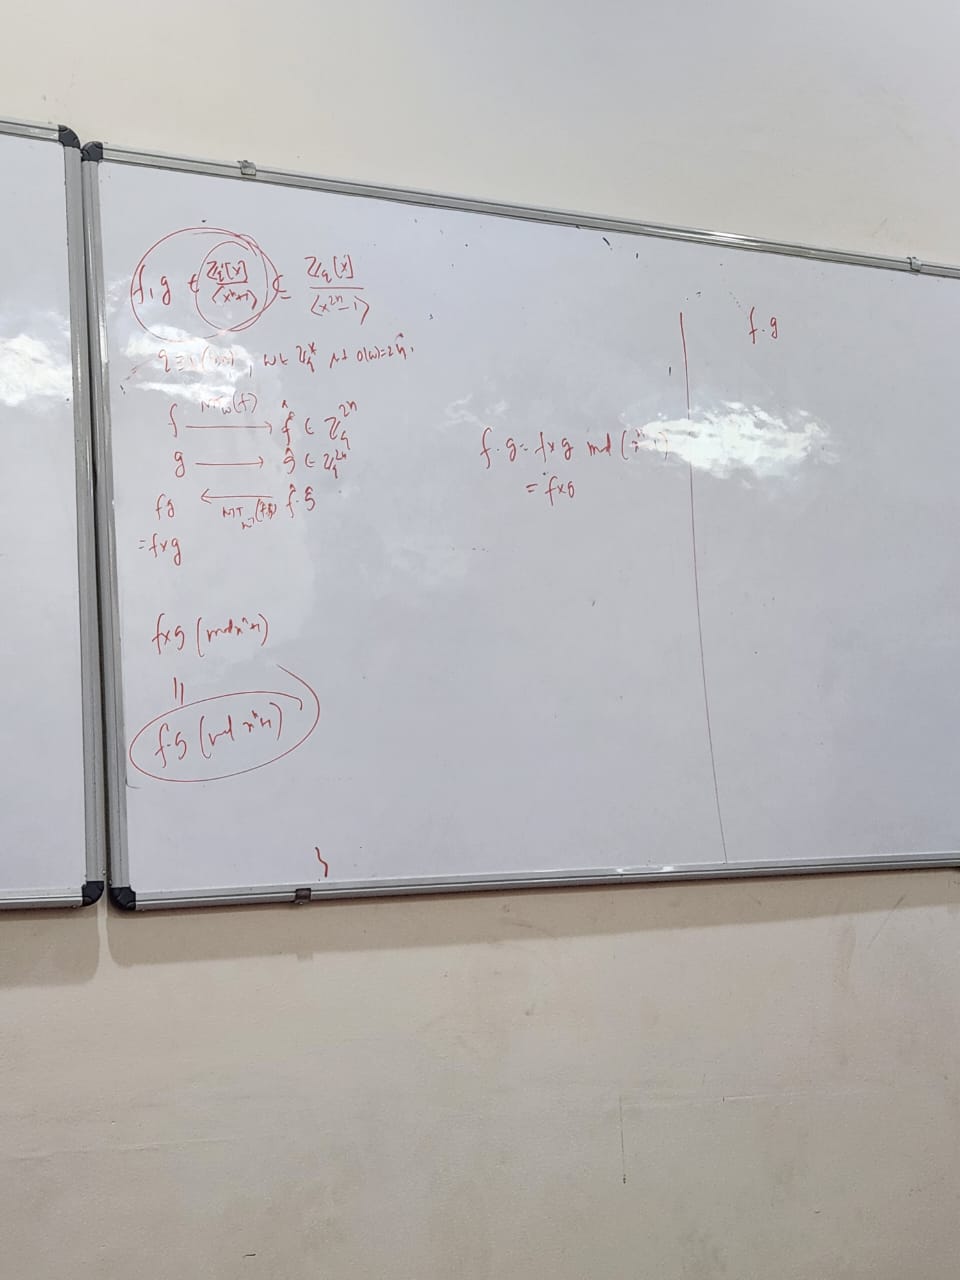 f, g ∈ ℤq[x]/⟨xⁿ+1⟩ ⊆ ℤq[x]/⟨x²ⁿ−1⟩
q ≡ 1 , w ∈ ℤq* o(w)=2n.
NTTw(f)
f ⟶ f̂ ∈ ℤq²ⁿ
g ⟶ ĝ ∈ ℤq²ⁿ
fg ⟵ f̂·ĝ
= f×g
f×g (mod xⁿ+1)
||
f·g (mod xⁿ+1)
f·g = f×g mod (
= f×g
f·g